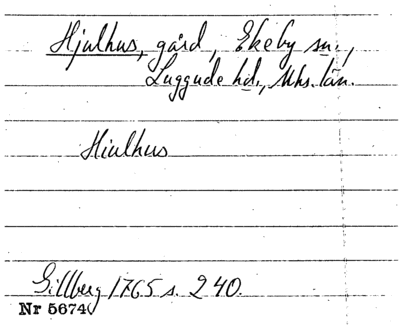 Hjulhus, gård, Ekeby sn.,
Luggude hd., Mhs. län.
Hiulhus
Gillberg 1765 s. 240.
Nr 5674